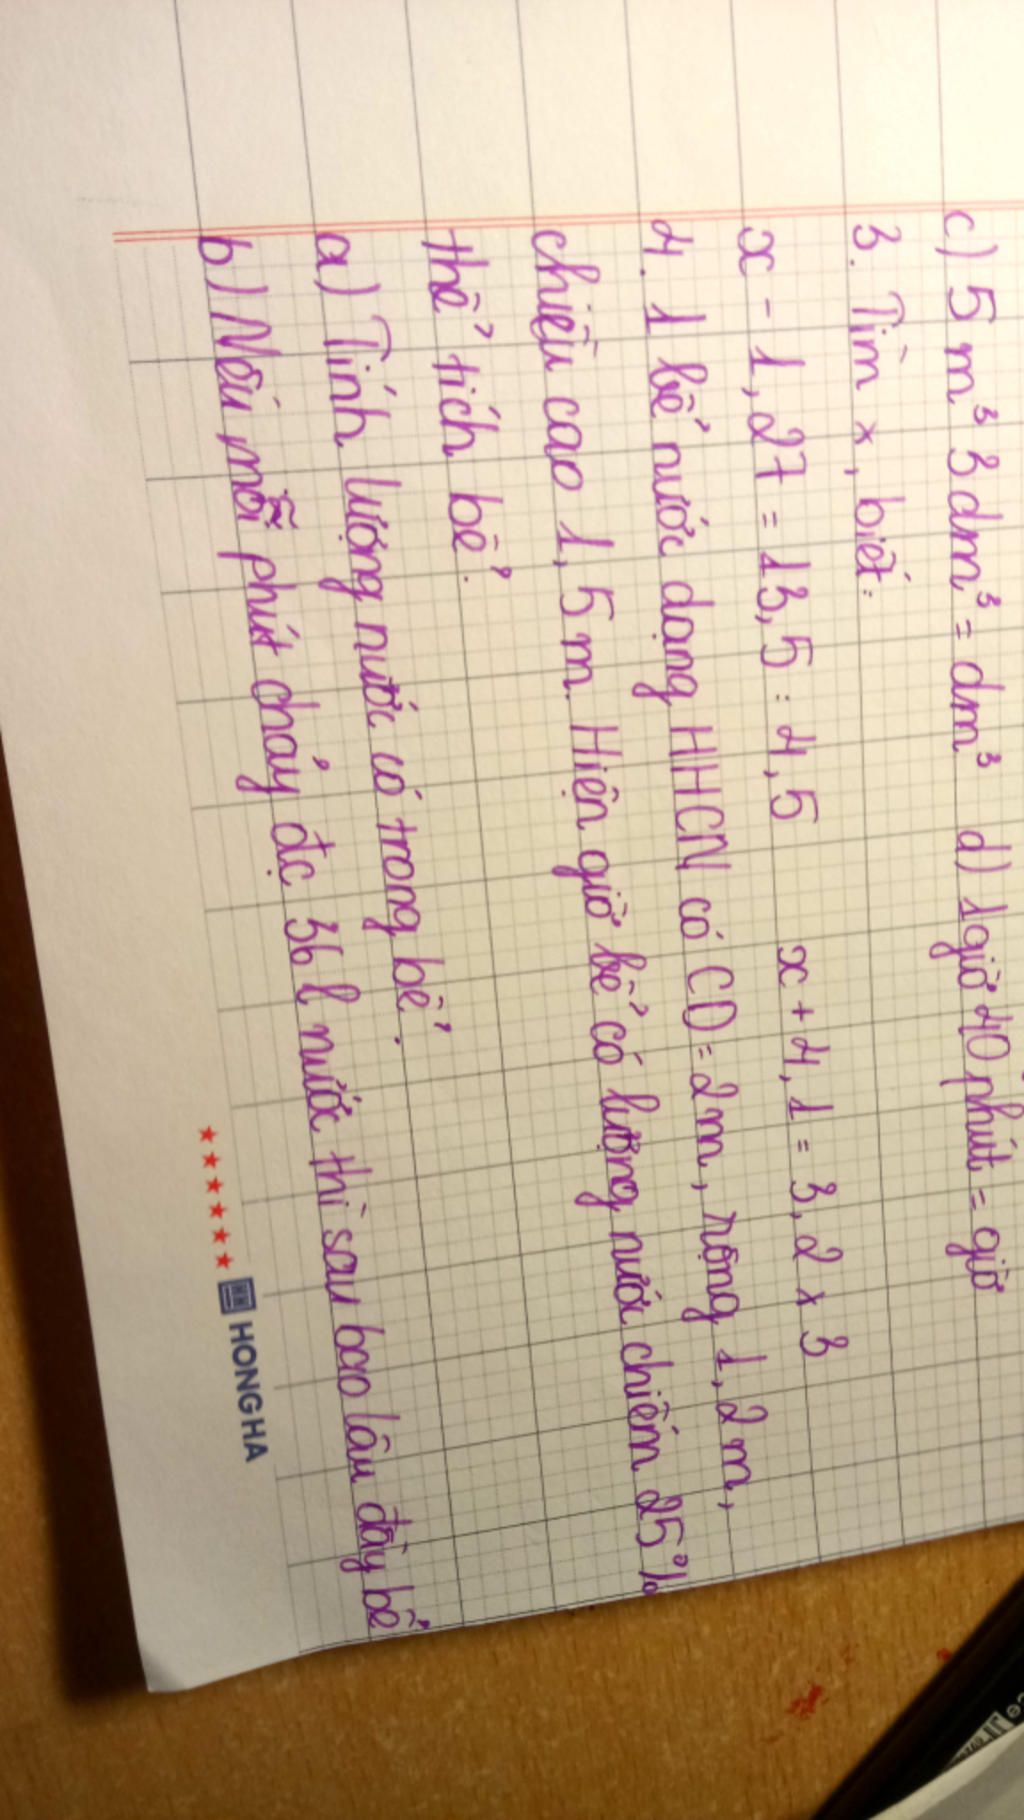 c) 5 m³ 3 dm³ = dm³ d) 1 giờ 40 phút = giờ
3. Tìm x, biết:
x - 1,27 = 13,5 : 4,5 x + 4,1 = 3,2 x 3
4. 1 bể nước dạng HHCN có CD = 2 m, rộng 1,2 m,
chiều cao 1,5 m. Hiện giờ bể có lượng nước chiếm 25%
thể tích bể.
a) Tính lượng nước có trong bể.
b) Nếu mỗi phút chảy đc 36 l nước thì sau bao lâu đầy bể
HONG HA